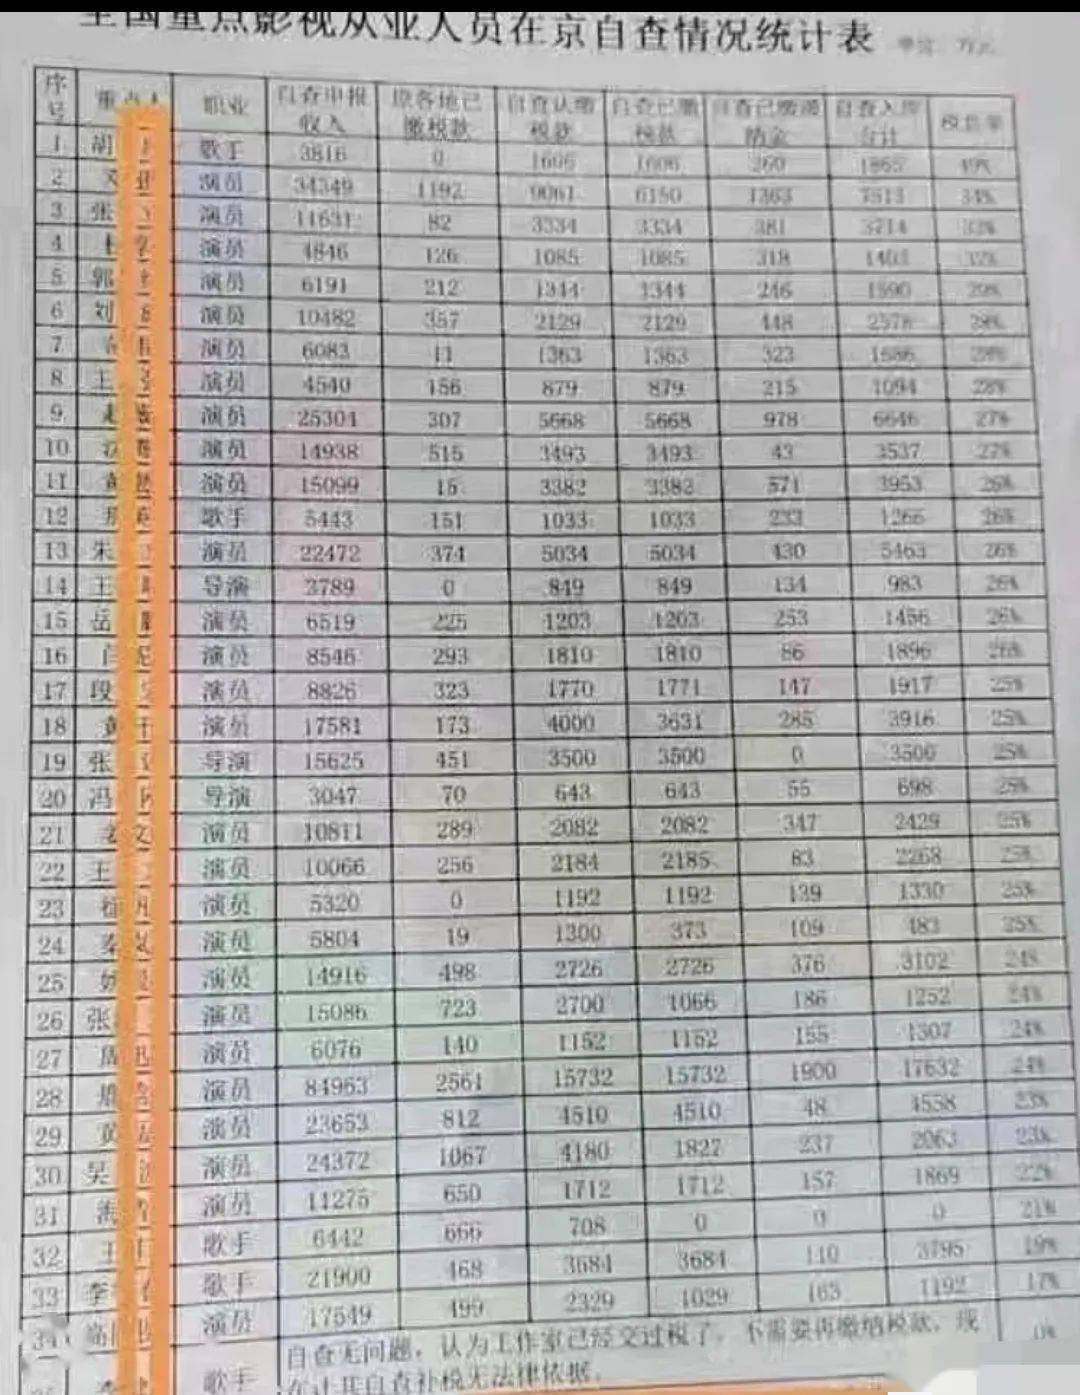 全国重点影视从业人员在京自查情况统计表 单位：万元
序号 重点人 职业 自查申报收入 原各地已缴税款 自查认缴税款 自查已缴税款 自查已缴滞纳金 自查入库合计 税负率
1 胡 歌手 3816 0 1606 1606 260 1865 49%
2 演员 34349 1192 9061 6150 1363 7513 34%
3 张 演员 11631 82 3334 3334 381 3714 33%
4 演员 4846 126 1085 1085 318 1403 32%
5 郭 演员 6191 212 1344 1344 246 1590 29%
6 刘 演员 10482 357 2129 2129 448 2578 28%
7 演员 6083 11 1363 1363 323 1686 28%
8 王 演员 4540 156 879 879 215 1094 28%
9 演员 25304 307 5668 5668 978 6646 27%
10 演员 14938 515 3493 3493 43 3537 27%
11 演员 15099 15 3382 3382 571 3953 26%
12 歌手 5443 151 1033 1033 233 1266 26%
13 朱 演员 22472 374 5034 5034 430 5463 26%
14 王 导演 3789 0 849 849 134 983 26%
15 岳 演员 6519 225 1203 1203 253 1456 26%
16 闫 妮 演员 8546 293 1810 1810 86 1896 26%
17 段 演员 8826 323 1770 1771 147 1917 25%
18 黄 演员 17581 173 4000 3631 285 3916 25%
19 张 导演 15625 451 3500 3500 0 3500 25%
20 冯 导演 3047 70 643 643 55 698 25%
21 文 演员 10811 289 2082 2082 347 2429 25%
22 王 演员 10066 256 2184 2185 83 2268 25%
23 演员 5320 0 1192 1192 139 1330 25%
24 秦 演员 5804 19 1300 373 109 483 25%
25 演员 14916 498 2726 2726 376 3102 24%
26 张 演员 15086 723 2700 1066 186 1252 24%
27 周 迅 演员 6076 140 1152 1152 155 1307 24%
28 演员 84963 2561 15732 15732 1900 17632 24%
29 黄 演员 23653 812 4510 4510 48 4558 23%
30 吴 演员 24372 1067 4180 1827 237 2063 23%
31 演员 11275 650 1712 1712 157 1869 22%
32 王 歌手 6442 666 708 0 0 0 21%
33 李 歌手 21900 468 3684 3684 110 3795 19%
34 演员 17549 499 2329 1029 163 1192 17%
李 歌手 自查无问题，认为工作室已经交过税了，不需要再缴纳税款，现
自查补税无法律依据。